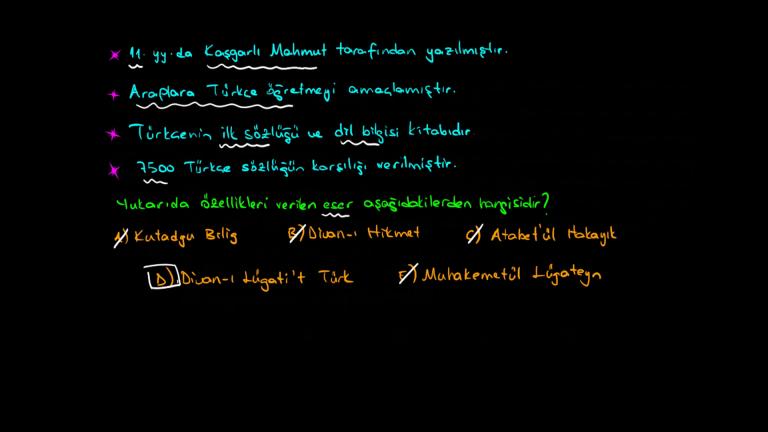 11. yy.da Kaşgarlı Mahmut tarafından yazılmıştır.
Araplara Türkçe öğretmeyi amaçlamıştır.
Türkçenin ilk sözlüğü ve dil bilgisi kitabıdır
7500 Türkçe sözlüğün karşılığı verilmiştir.
Yukarıda özellikleri verilen eser aşağıdakilerden hangisidir?
A) Kutadgu Bilig B) Divan-ı Hikmet C) Atabet'ül Hakayık
D) Divan-ı Lügati't Türk E) Muhakemetül Lügateyn